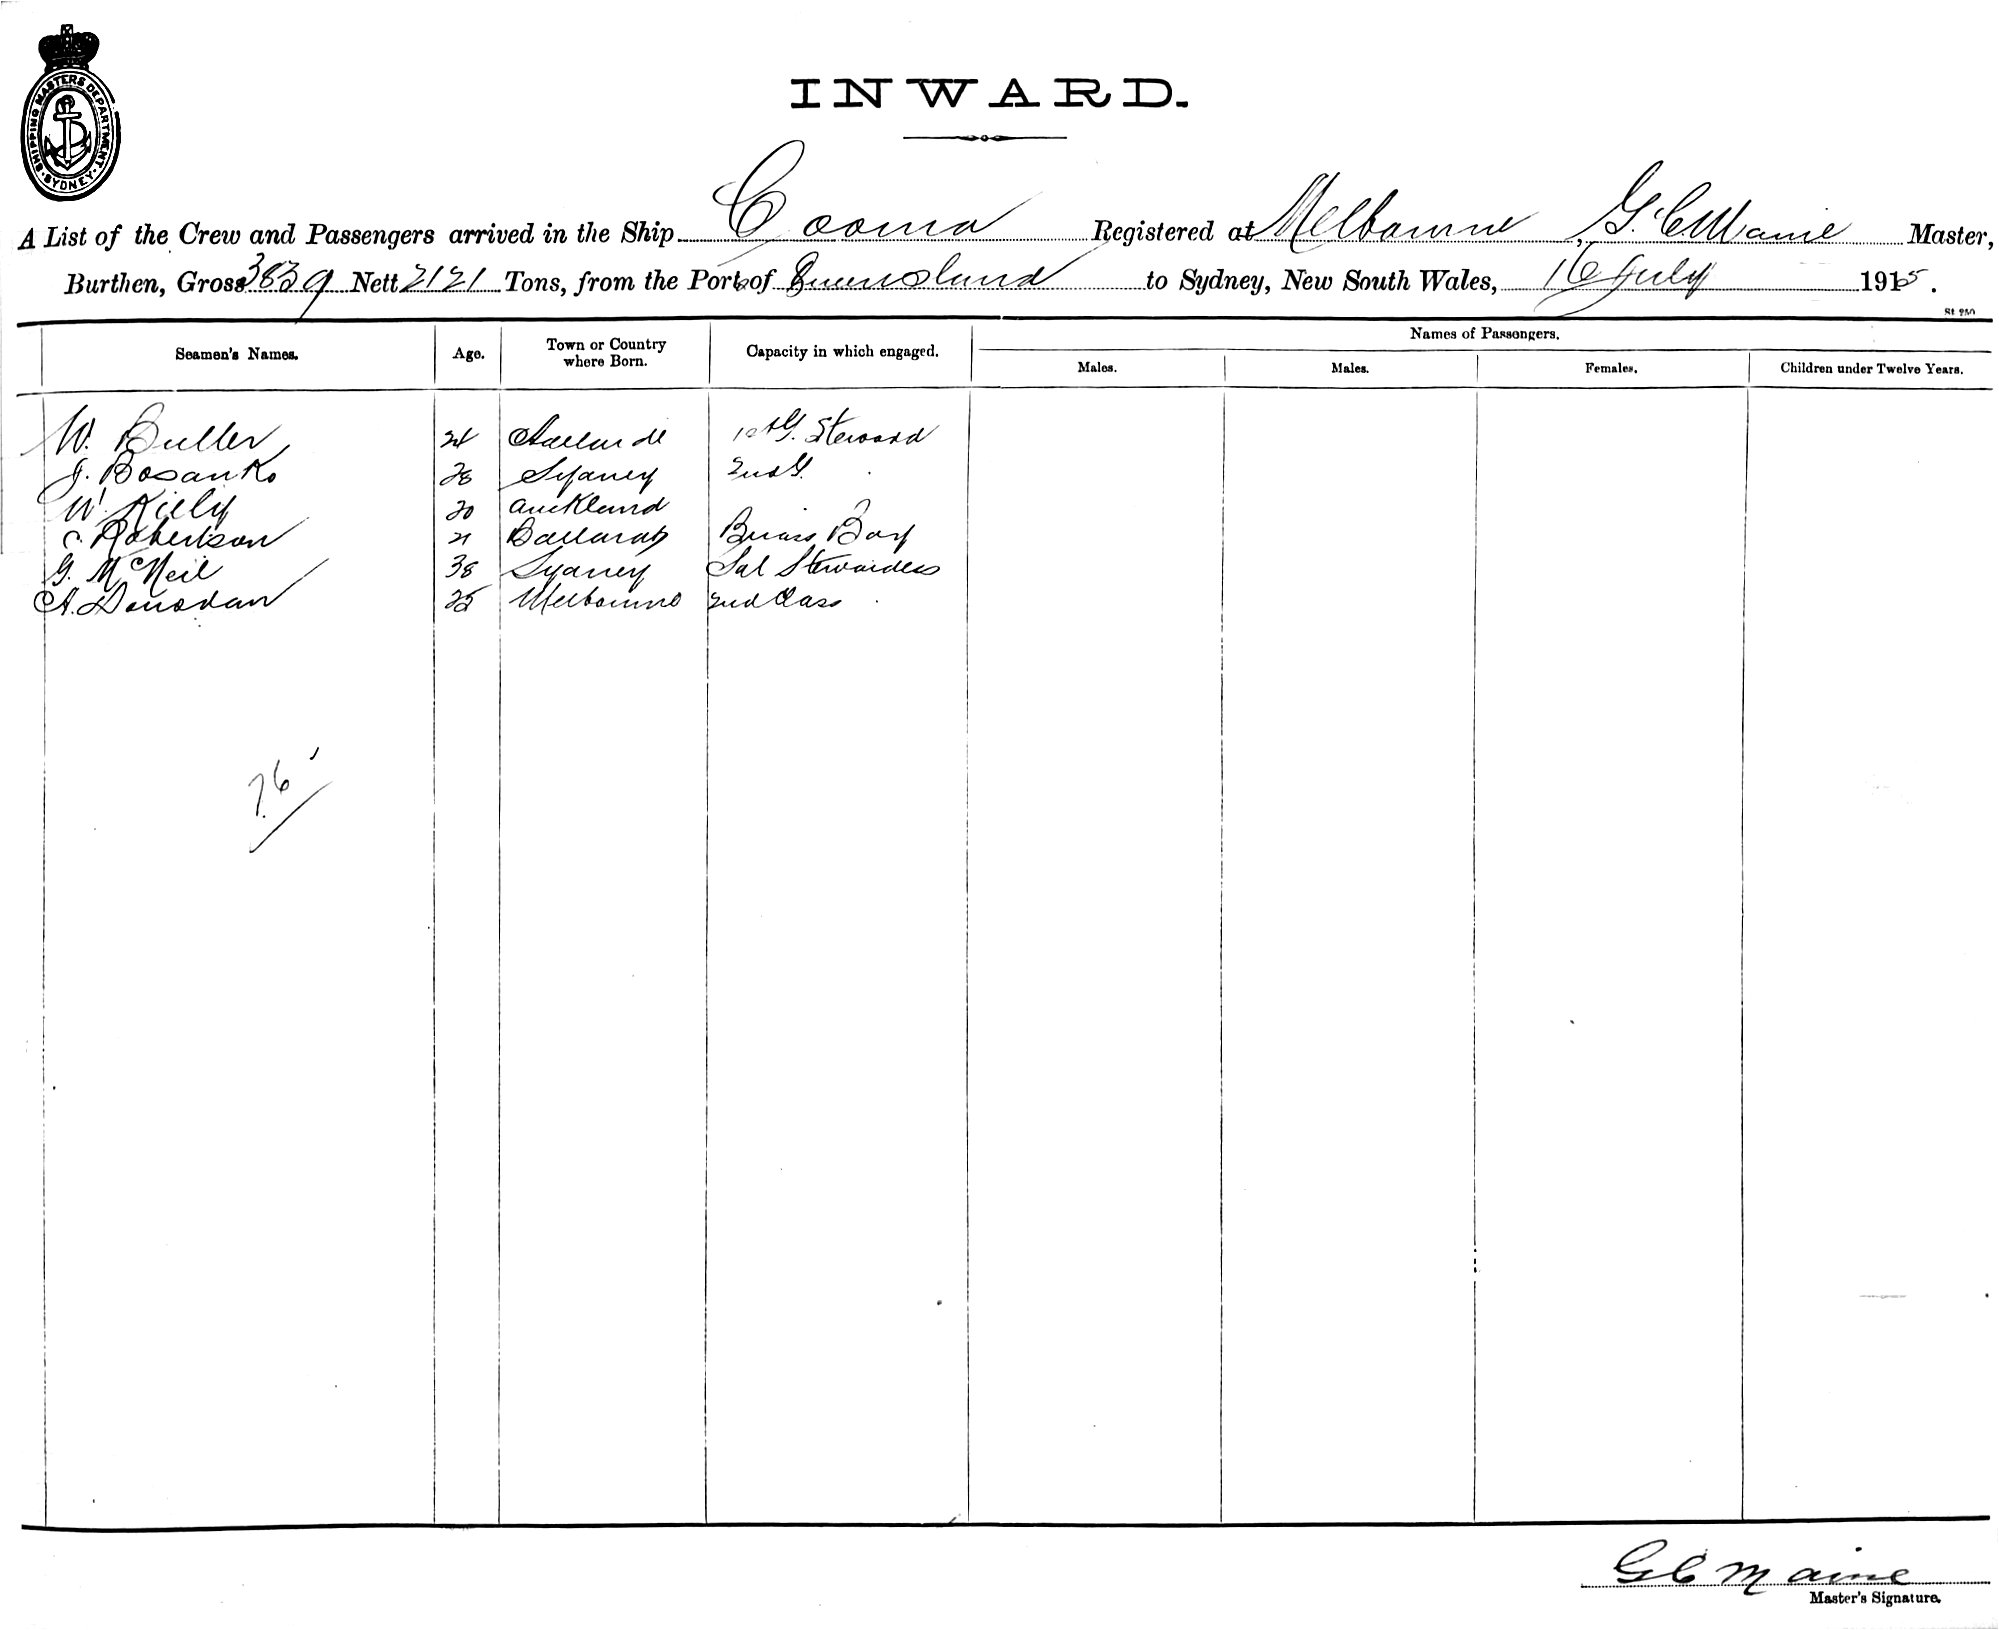 SHIPPING MASTERS DEPARTMENT. SYDNEY.
INWARD.
A List of the Crew and Passengers arrived in the Ship Cooma Registered at Melbourne, G. C. Maine Master,
Burthen, Gross 3839 Nett 2121 Tons, from the Port of Queensland to Sydney, New South Wales, 16 July 1915.
St 250
Seamen's Names. Age. Town or Country where Born. Capacity in which engaged. Names of Passengers.
Males. Males. Females. Children under Twelve Years.
W. Buller 24 Adelaide 1st G. Steward
J. Bosanko 28 Sydney 2nd G.
W. Kielly 20 Auckland
C. Robertson 21 Ballarat Brass Boy
G. McNeil 38 Sydney Sal Stewardess
A. Donovan 25 Melbourne 2nd Class
76
G C Maine
Master's Signature.